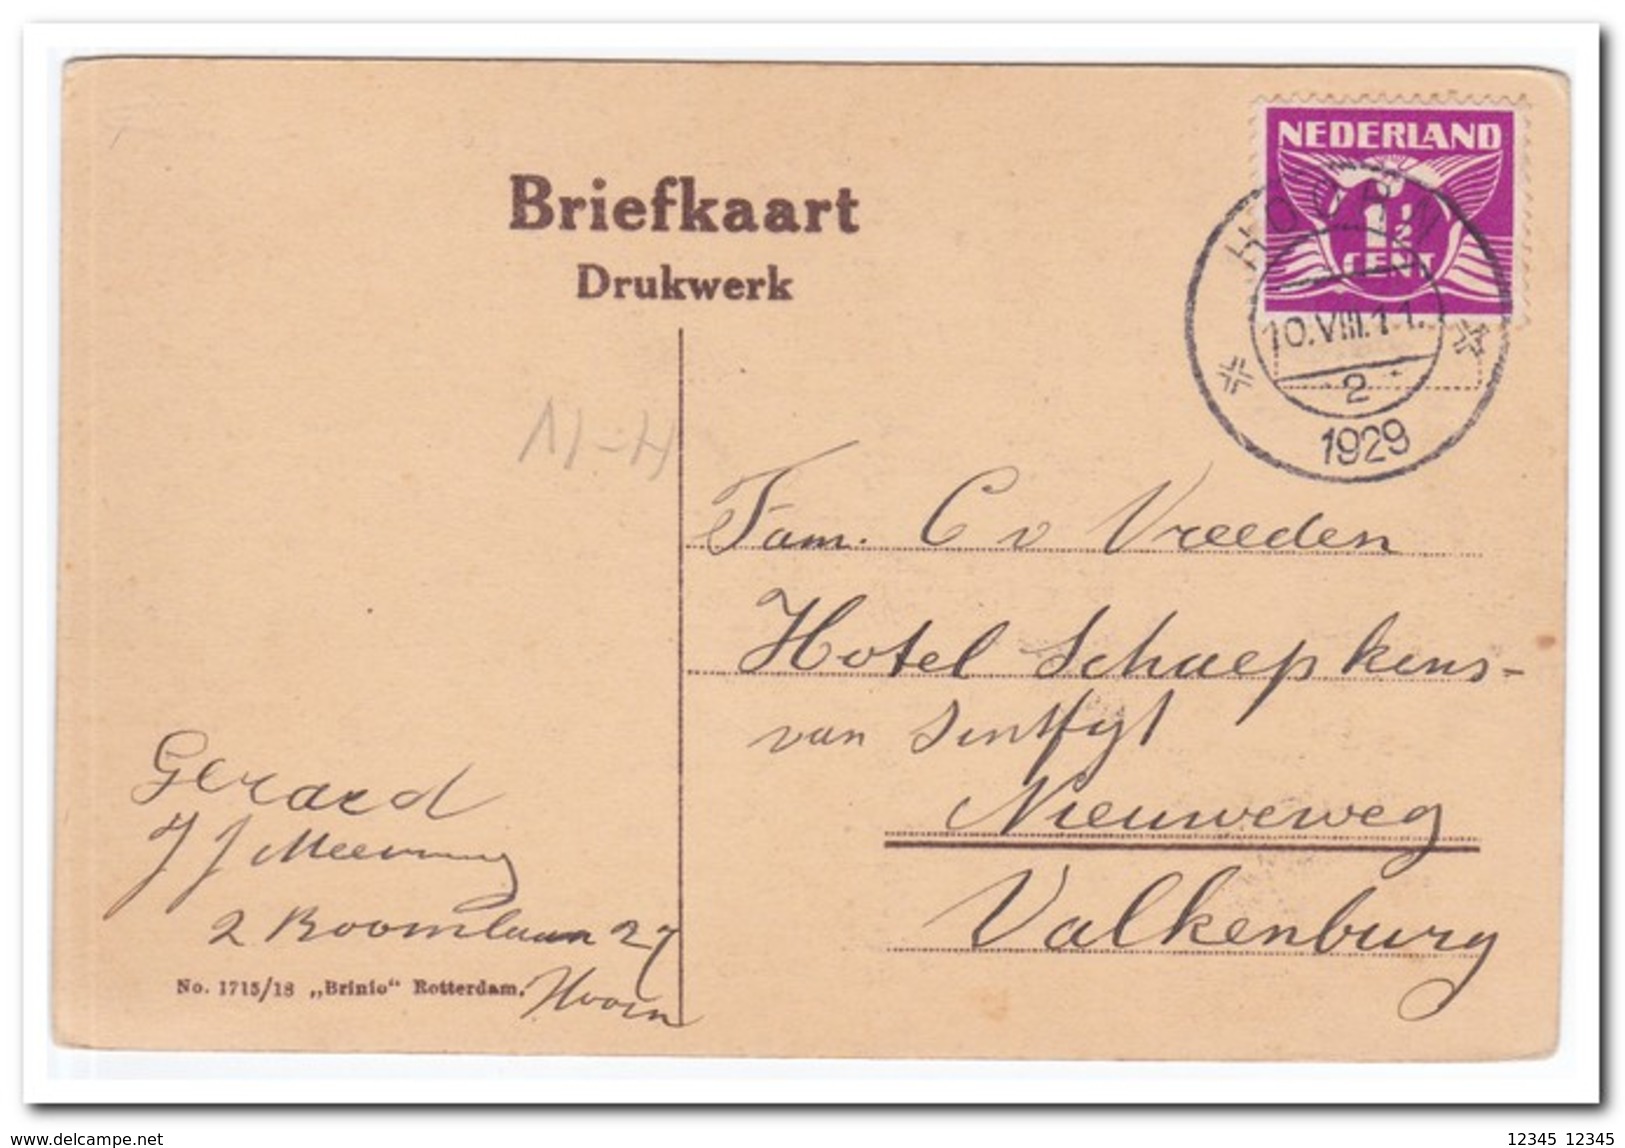 Briefkaart
Drukwerk
NEDERLAND
1½
CENT
HOORN
10.VIII.11.
2
1929
N-H
Fam. C v Vreeden
Hotel Schaepkens-
van Sintfyt
Nieuweweg
Valkenburg
Gerard
J J
2 Boomlaan 27
Hoorn
No. 1715/18 „Brinio“ Rotterdam.
delcampe.net
12345 12345